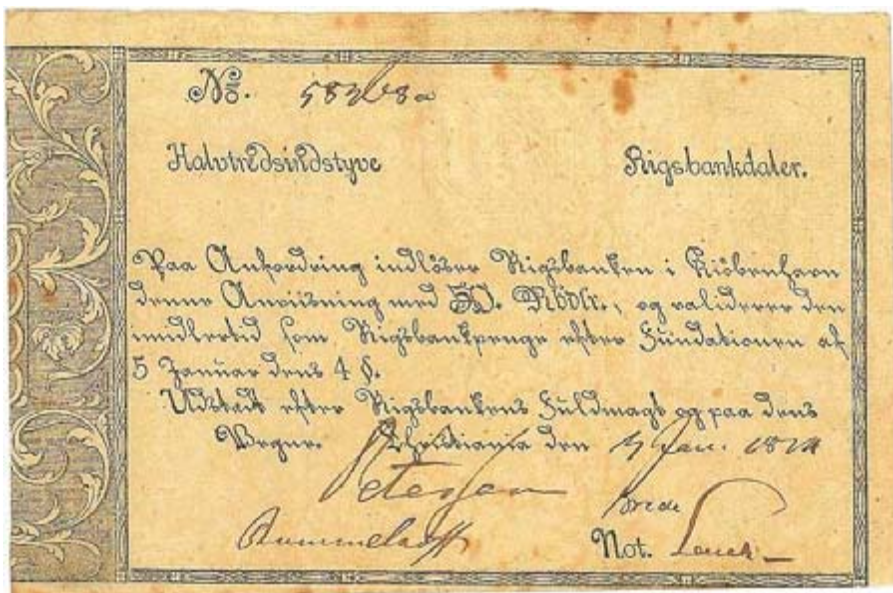 No.
Halvtredsindstyve Rigsbankdaler.
Paa Anfordring indløser Rigsbanken i Kiöbenhavn
denne Anviisning med 50. Rbdlr., og validerer den
imidlertid som Rigsbankpenge efter Fundationen af
5 Januar dens 4 §.
Udstædt efter Rigsbankens Fuldmagt og paa dens
Vegne. Christiania den Jan. 1814
Not.